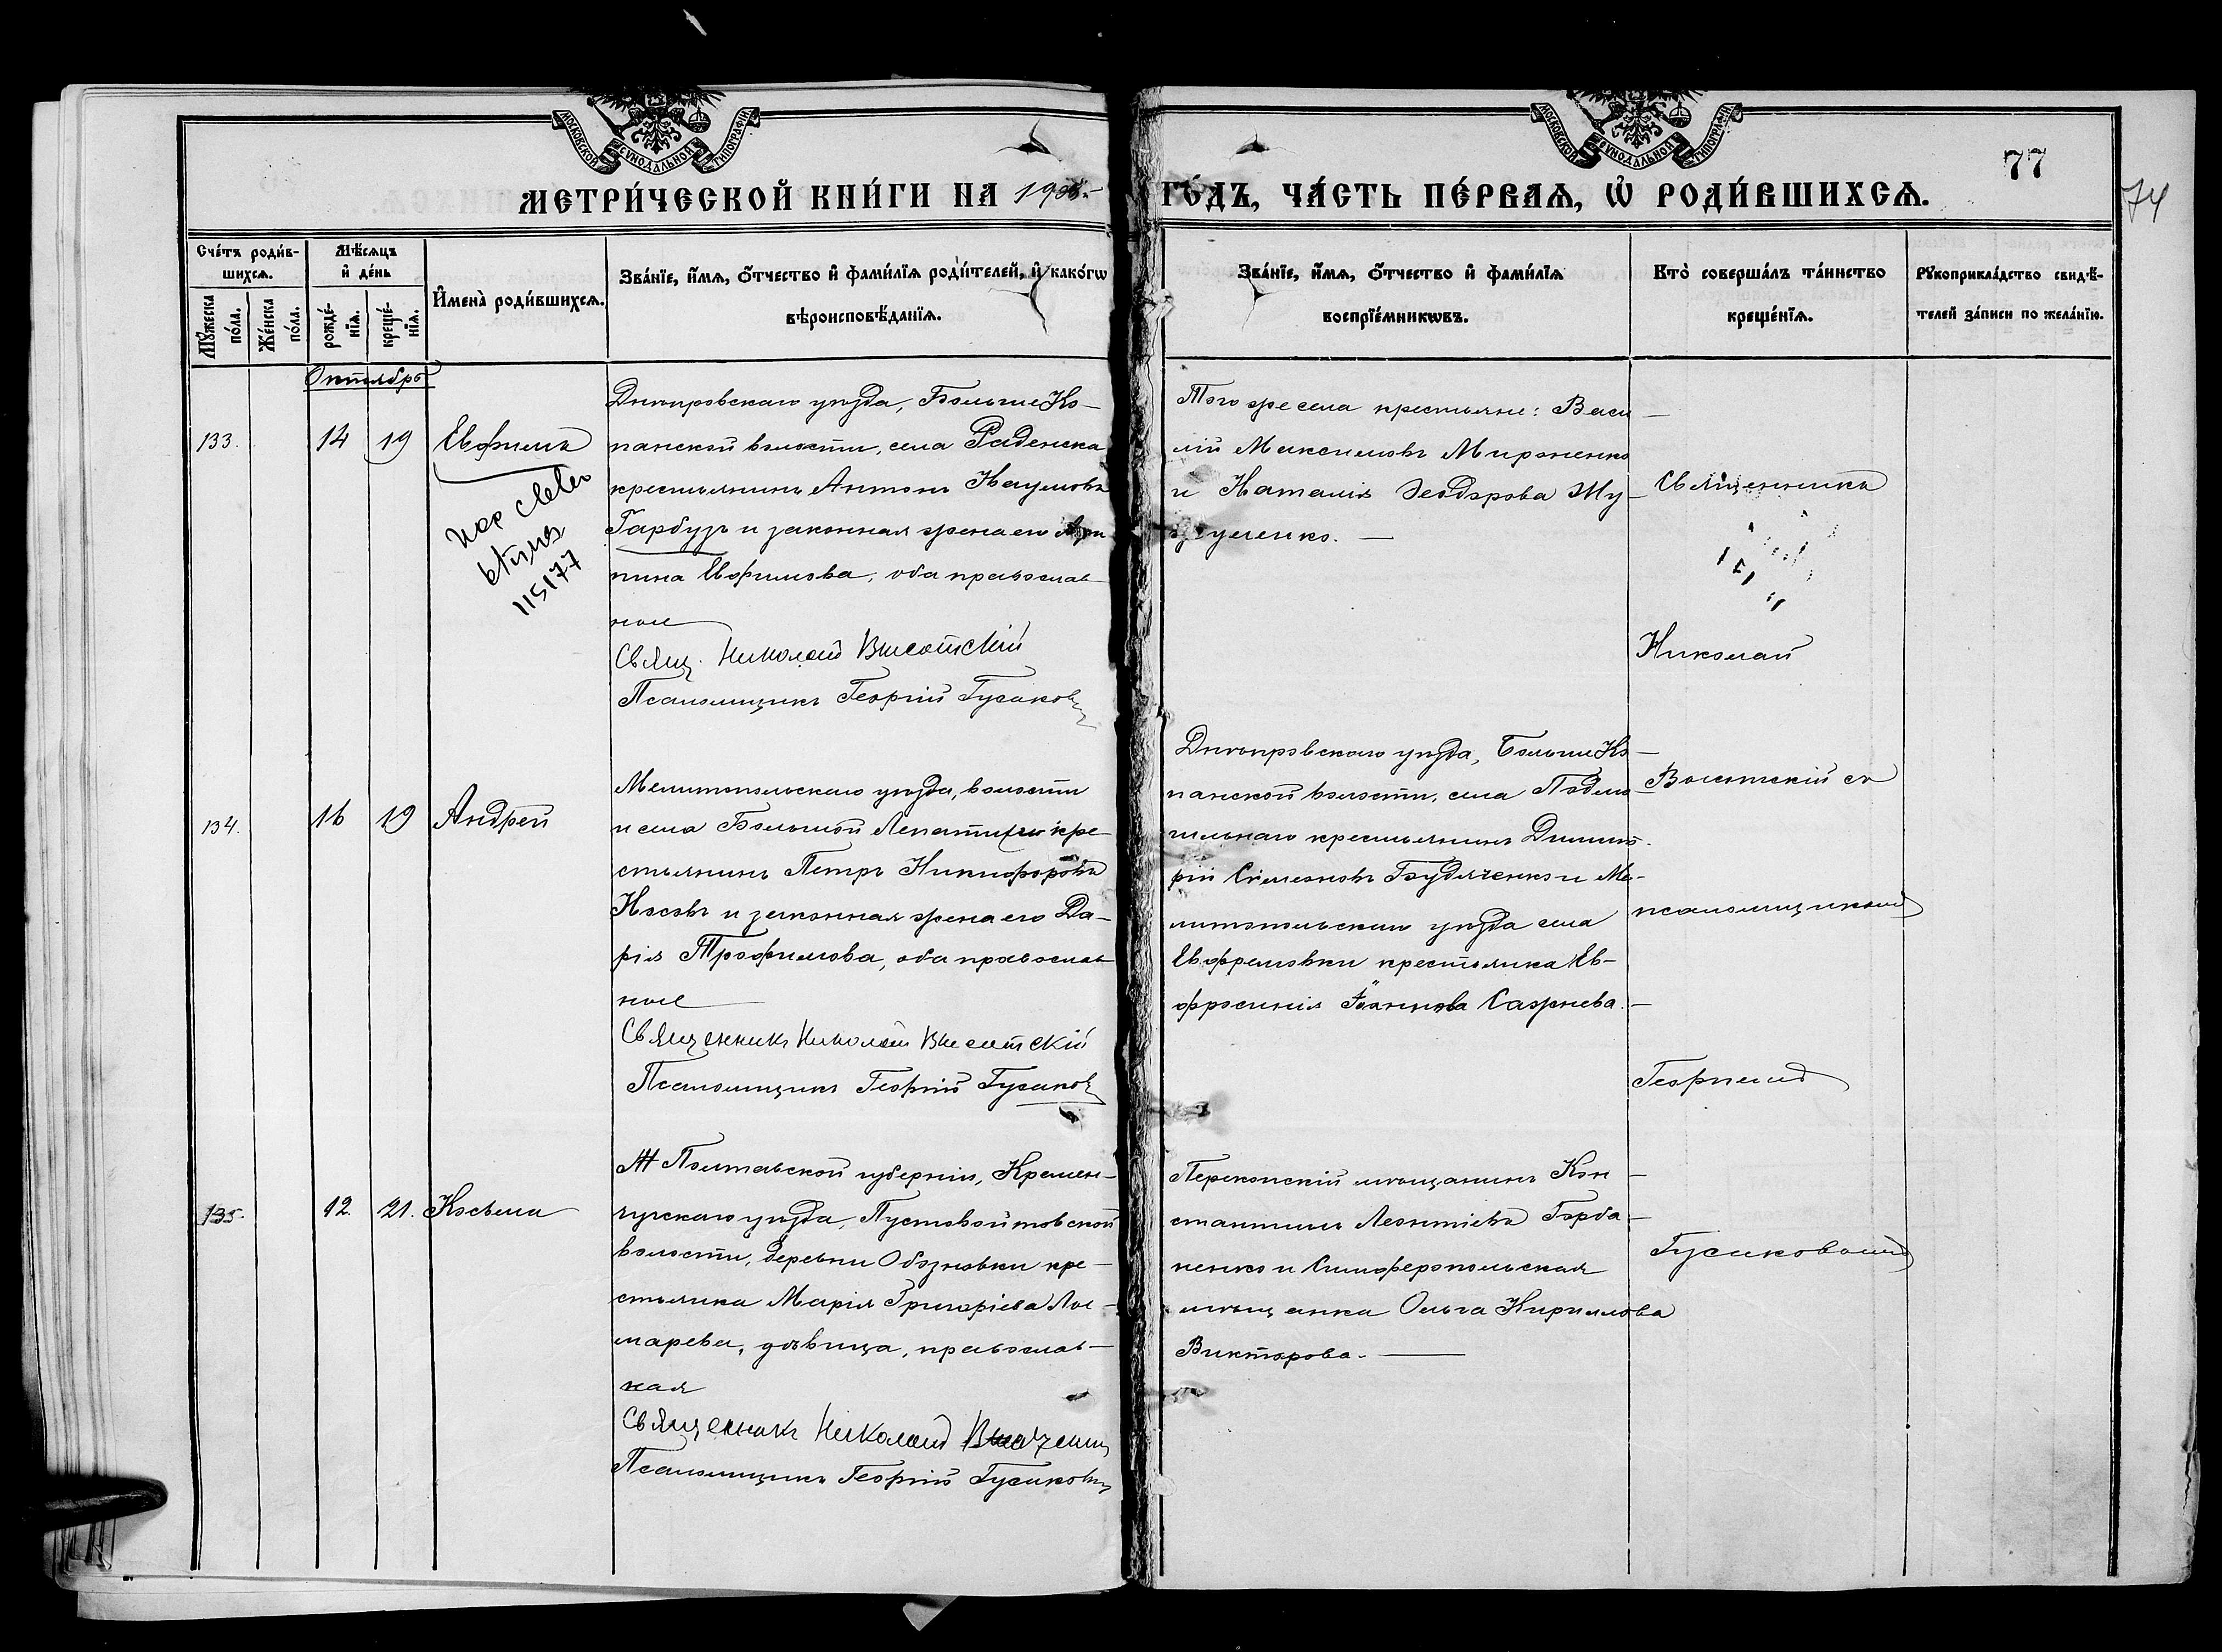 МОСКОВСКОЙ СѴНОДАЛЬНОЙ ТИПОГРАФІИ
МОСКОВСКОЙ СѴНОДАЛЬНОЙ ТИПОГРАФІИ
77
74
МЕТРИ́ЧЕСКОЙ КНИ́ГИ НА 1905 ГО́ДЪ, ЧА́СТЬ ПЕ́РВАѦ, Ѡ҆ РОДИ́ВШИХСѦ.
Сче́тъ роди́в-
шихсѧ.
Мꙋ́жеска по́ла.
Же́нска по́ла.
Мѣ́сѧцъ
и҆ де́нь
рожде́-
нїѧ.
креще́-
нїѧ.
И҆мена̀ роди́вшихсѧ.
Зва́нїе, и҆́мѧ, ѻ҆́тчество и҆ фами́лїѧ роди́телей, и҆ како́гѡ
вѣроисповѣ́данїѧ.
Зва́нїе, и҆́мѧ, ѻ҆́тчество и҆ фами́лїѧ
воспрїе́мникѡвъ.
Кто̀ соверша́лъ та́инство
креще́нїѧ.
Рꙋкоприкла́дство свидѣ́-
телей за́писи по жела́нїю.
Октябрь
133.
14
19
Евфимъ
115177
Днѣпровскаго уѣзда, БольшеКо-
панской волости, села Раденска
крестьянинъ Антонъ Наумовъ
Гарбузъ и законная жена его Агри
пина Евфимова, оба православ
ные
Свящ. Николай Высотскій
Псаломщикъ Георгій Гусаковъ
Того же села крестьяне: Васи-
лій Максимовъ Мироненко
и Наталія Ѳеодорова Жу-
Священникъ
Николай
134.
16
19
Андрей
Мелитопольскаго уѣзда, волости
и села Большой Лепатихи кре-
стьянинъ Петръ Никифоровъ
Носовъ и законная жена его Да-
рія Трофимова, оба православ
ные
Священникъ Николай Высотскій
Псаломщикъ Георгій Гусаковъ
Днѣпровскаго уѣзда, БольшеКо-
панской волости, села Подмо-
гильнаго крестьянинъ Димит-
рій Симеоновъ Будяченко и Ме-
литопольскаго уѣзда села
Евфремовки крестьянка Ев-
фросинія Іоаннова Сажнева.
Высотскій съ
псаломщикомъ
Георгіемъ
135.
12.
21.
Косьма
Полтавской губерніи, Кремен-
чугскаго уѣзда, Пустовойтовской
волости, деревни Обозновки кре-
стьянка Марія Григоріева Лос-
марева, дѣвица, православ-
ная
Священникъ Николай
Псаломщикъ Георгій Гусаковъ
Перекопскій мѣщанинъ Кон-
стантинъ Леонтіевъ Горба-
ненко и Симферопольская
мѣщанка Ольга Кириллова
Викторова.
Гусаковымъ